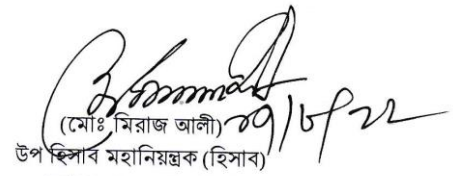 (মোঃ মিরাজ আলী)
উপ হিসাব মহানিয়ন্ত্রক (হিসাব)